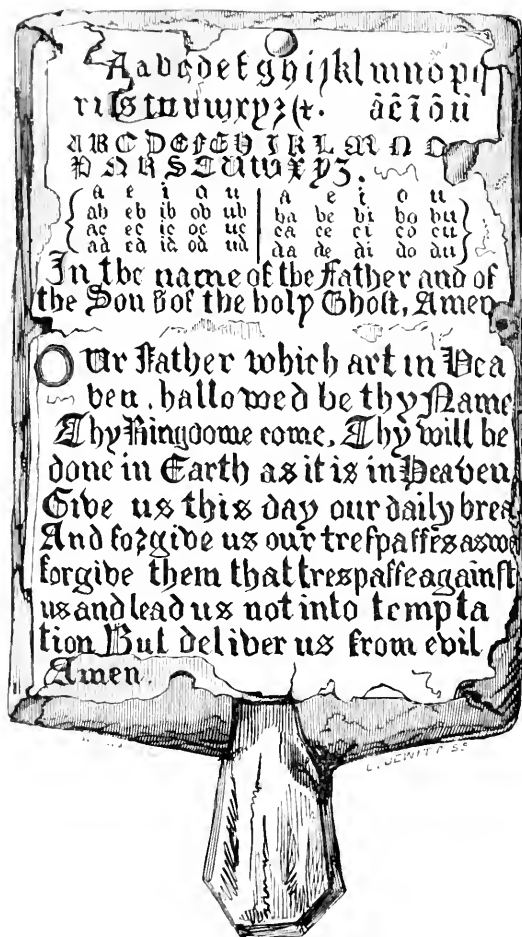 A a b c d e f g h i j k l m n o p q
r ı ſ s t u v w x y z & · ã ẽ ĩ õ ũ
A B C D E F G H I K L M N O
P Q R S T U W X Y Z .
a e i o u a e i o u
ab eb ib ob ub ba be bi bo bu
ac ec ic oc uc ca ce ci co cu
ad ed id od ud da de di do du
In the name of the Father and of
the Son & of the holy Ghost, Amen
OUr Father which art in Hea
ven, hallowed be thy Name
Thy Kingdome come, Thy will be
done in Earth as it is in Heaven
Give us this day our daily brea
And forgive us our treſpaſſes as we
forgive them that treſpaſſe againſt
us and lead us not into tempta
tion But deliver us from evil
Amen.
L. JEWITT Sc